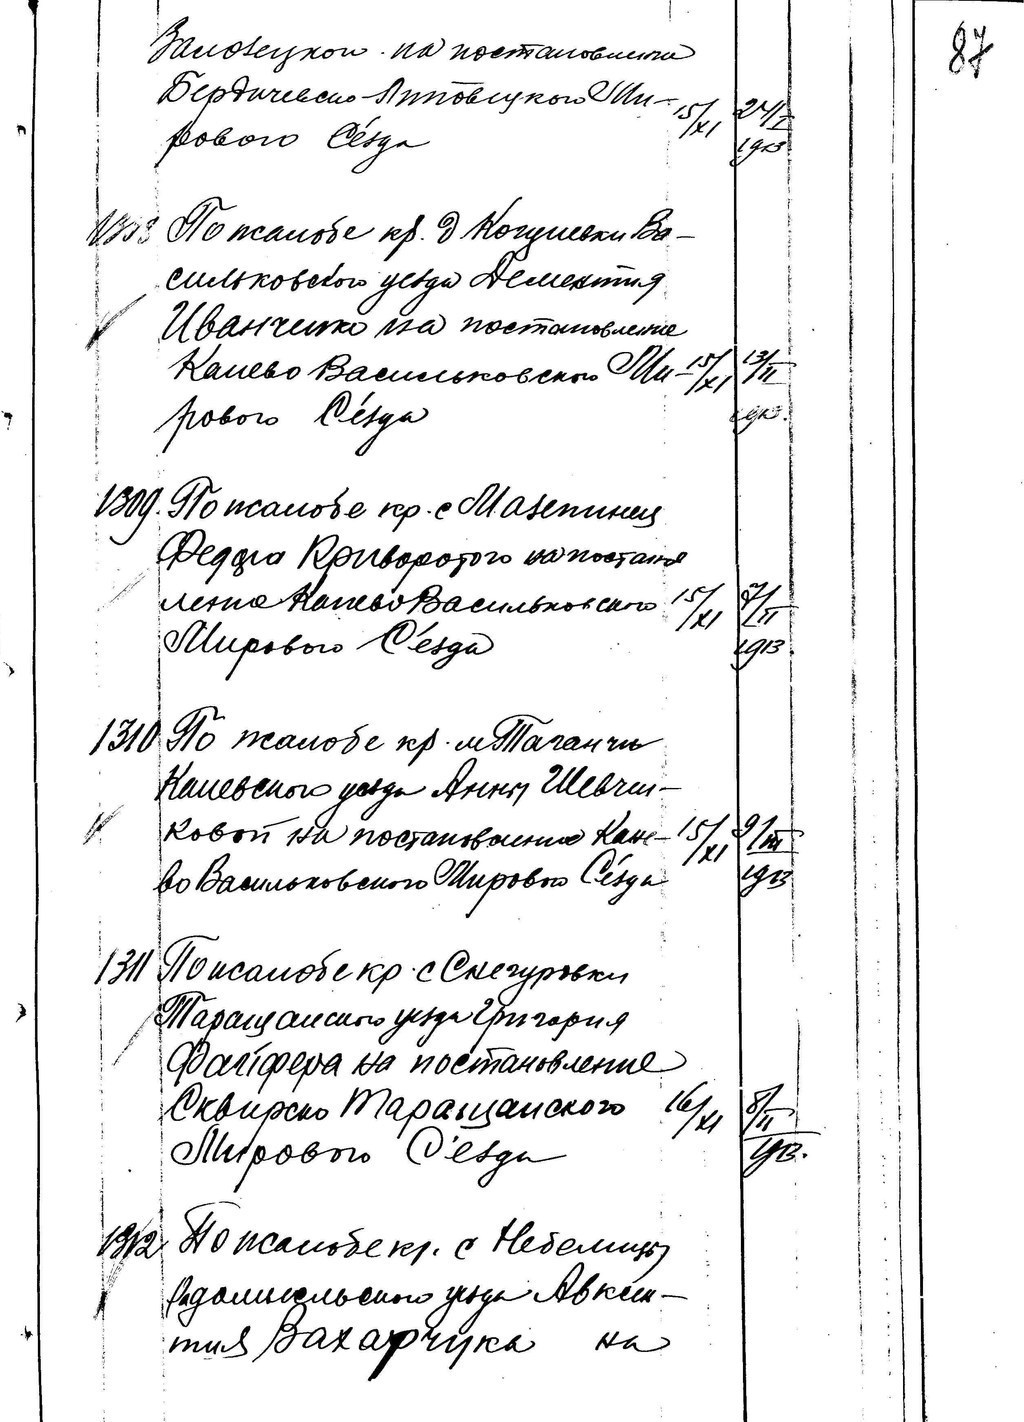 87
на постановление
Бердичевско-Липовецкого Ми- 15/XI 24/I
рового Съезда 1913
1308 По жалобе кр. д. Ва-
сильковского уезда Дементия
Иванченко на постановление
Канево Васильковского Ми- 15/XI 13/II
рового Съезда 1913.
1309. По жалобе кр. с Мазепинец
Федора Криворотого на постанов
ление Канево Васильковского 15/XI 7/II
Мирового Съезда 1913.
1310 По жалобе кр. м Таганчи
Каневского уезда Анны Шевчен-
ковой на постановление Кане- 15/XI 9/III
во Васильковского Мирового Съезда 1913
1311 По жалобе кр. с Снегуровки
Таращанского уезда Григория
Файфера на постановление
Сквирско Таращанского 16/XI 8/II
Мирового Съезда 1913.
1312 По жалобе кр. с Небелицы
Радомысльского уезда Авксен-
тия Захарчука на